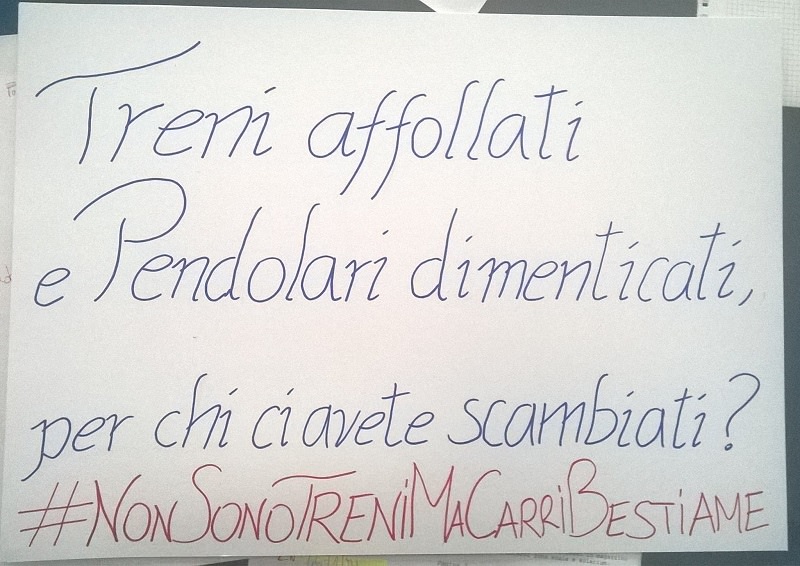 Treni affollati
e Pendolari dimenticati,
per chi ci avete scambiati?
#NonSonoTreniMaCarriBestiame